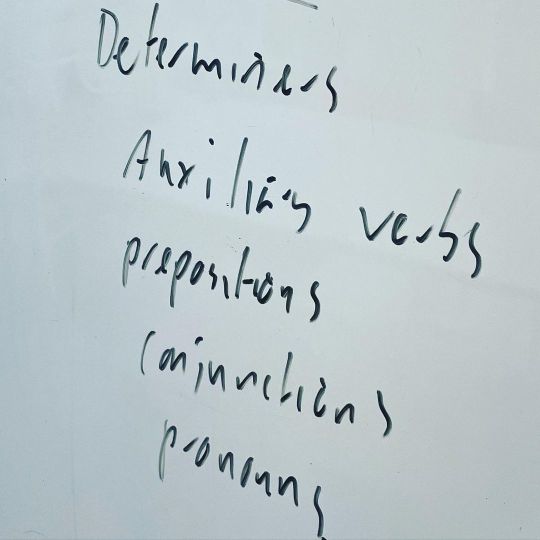 Determiners
Auxiliary verbs
prepositions
conjunctions
pronouns